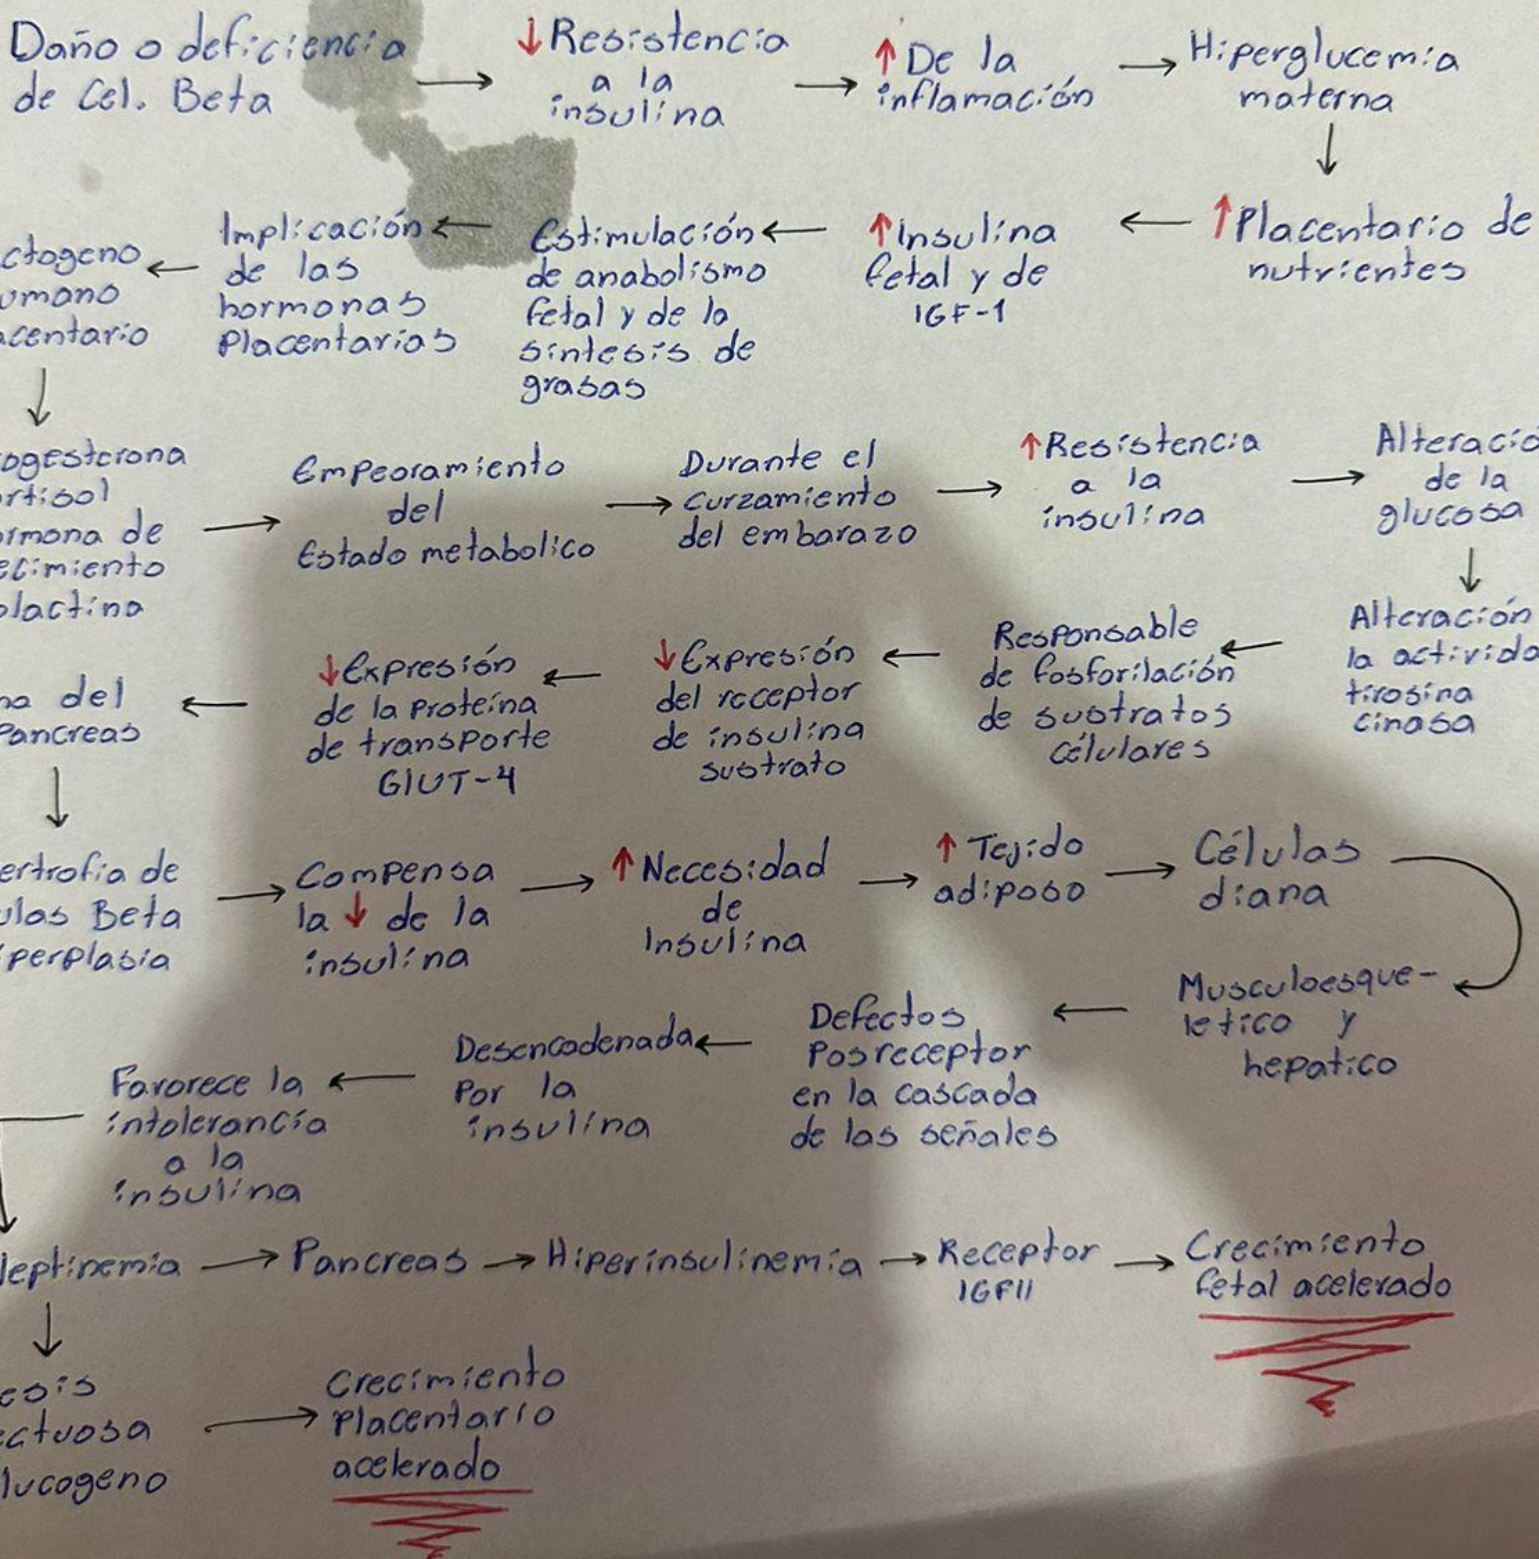 Daño o deficiencia
de Cel. Beta
↓ Resistencia
a la
insulina
↑ De la
inflamación
Hiperglucemia
materna
↑ Placentario de
nutrientes
↑ Insulina
fetal y de
IGF-1
Estimulación
de anabolismo
fetal y de la
síntesis de
grasas
Implicación
de las
hormonas
Placentarias
ctogeno
umano
acentario
ogesterona
rtisol
rmona de
ecimiento
olactina
Empeoramiento
del
Estado metabolico
Durante el
curzamiento
del embarazo
↑ Resistencia
a la
insulina
Alteració
de la
glucosa
Alteración
la activida
tirosina
cinasa
Responsable
de fosforilación
de sustratos
célulares
↓ Expresión
del receptor
de insulina
sustrato
↓ Expresión
de la Proteína
de transporte
GlUT-4
na del
Pancreas
ertrofia de
ulas Beta
iperplasia
Compensa
la ↓ de la
insulina
↑ Necesidad
de
Insulina
↑ Tejido
adiposo
Células
diana
Musculoesque-
letico y
hepatico
Defectos
Posreceptor
en la cascada
de las señales
Desencadenada
Por la
insulina
Favorece la
intolerancía
a la
insulina
leptinemia
Pancreas
Hiperinsulinemia
Receptor
IGFII
Crecimiento
fetal acelerado
esis
ectuosa
lucogeno
Crecimiento
Placentario
acelerado